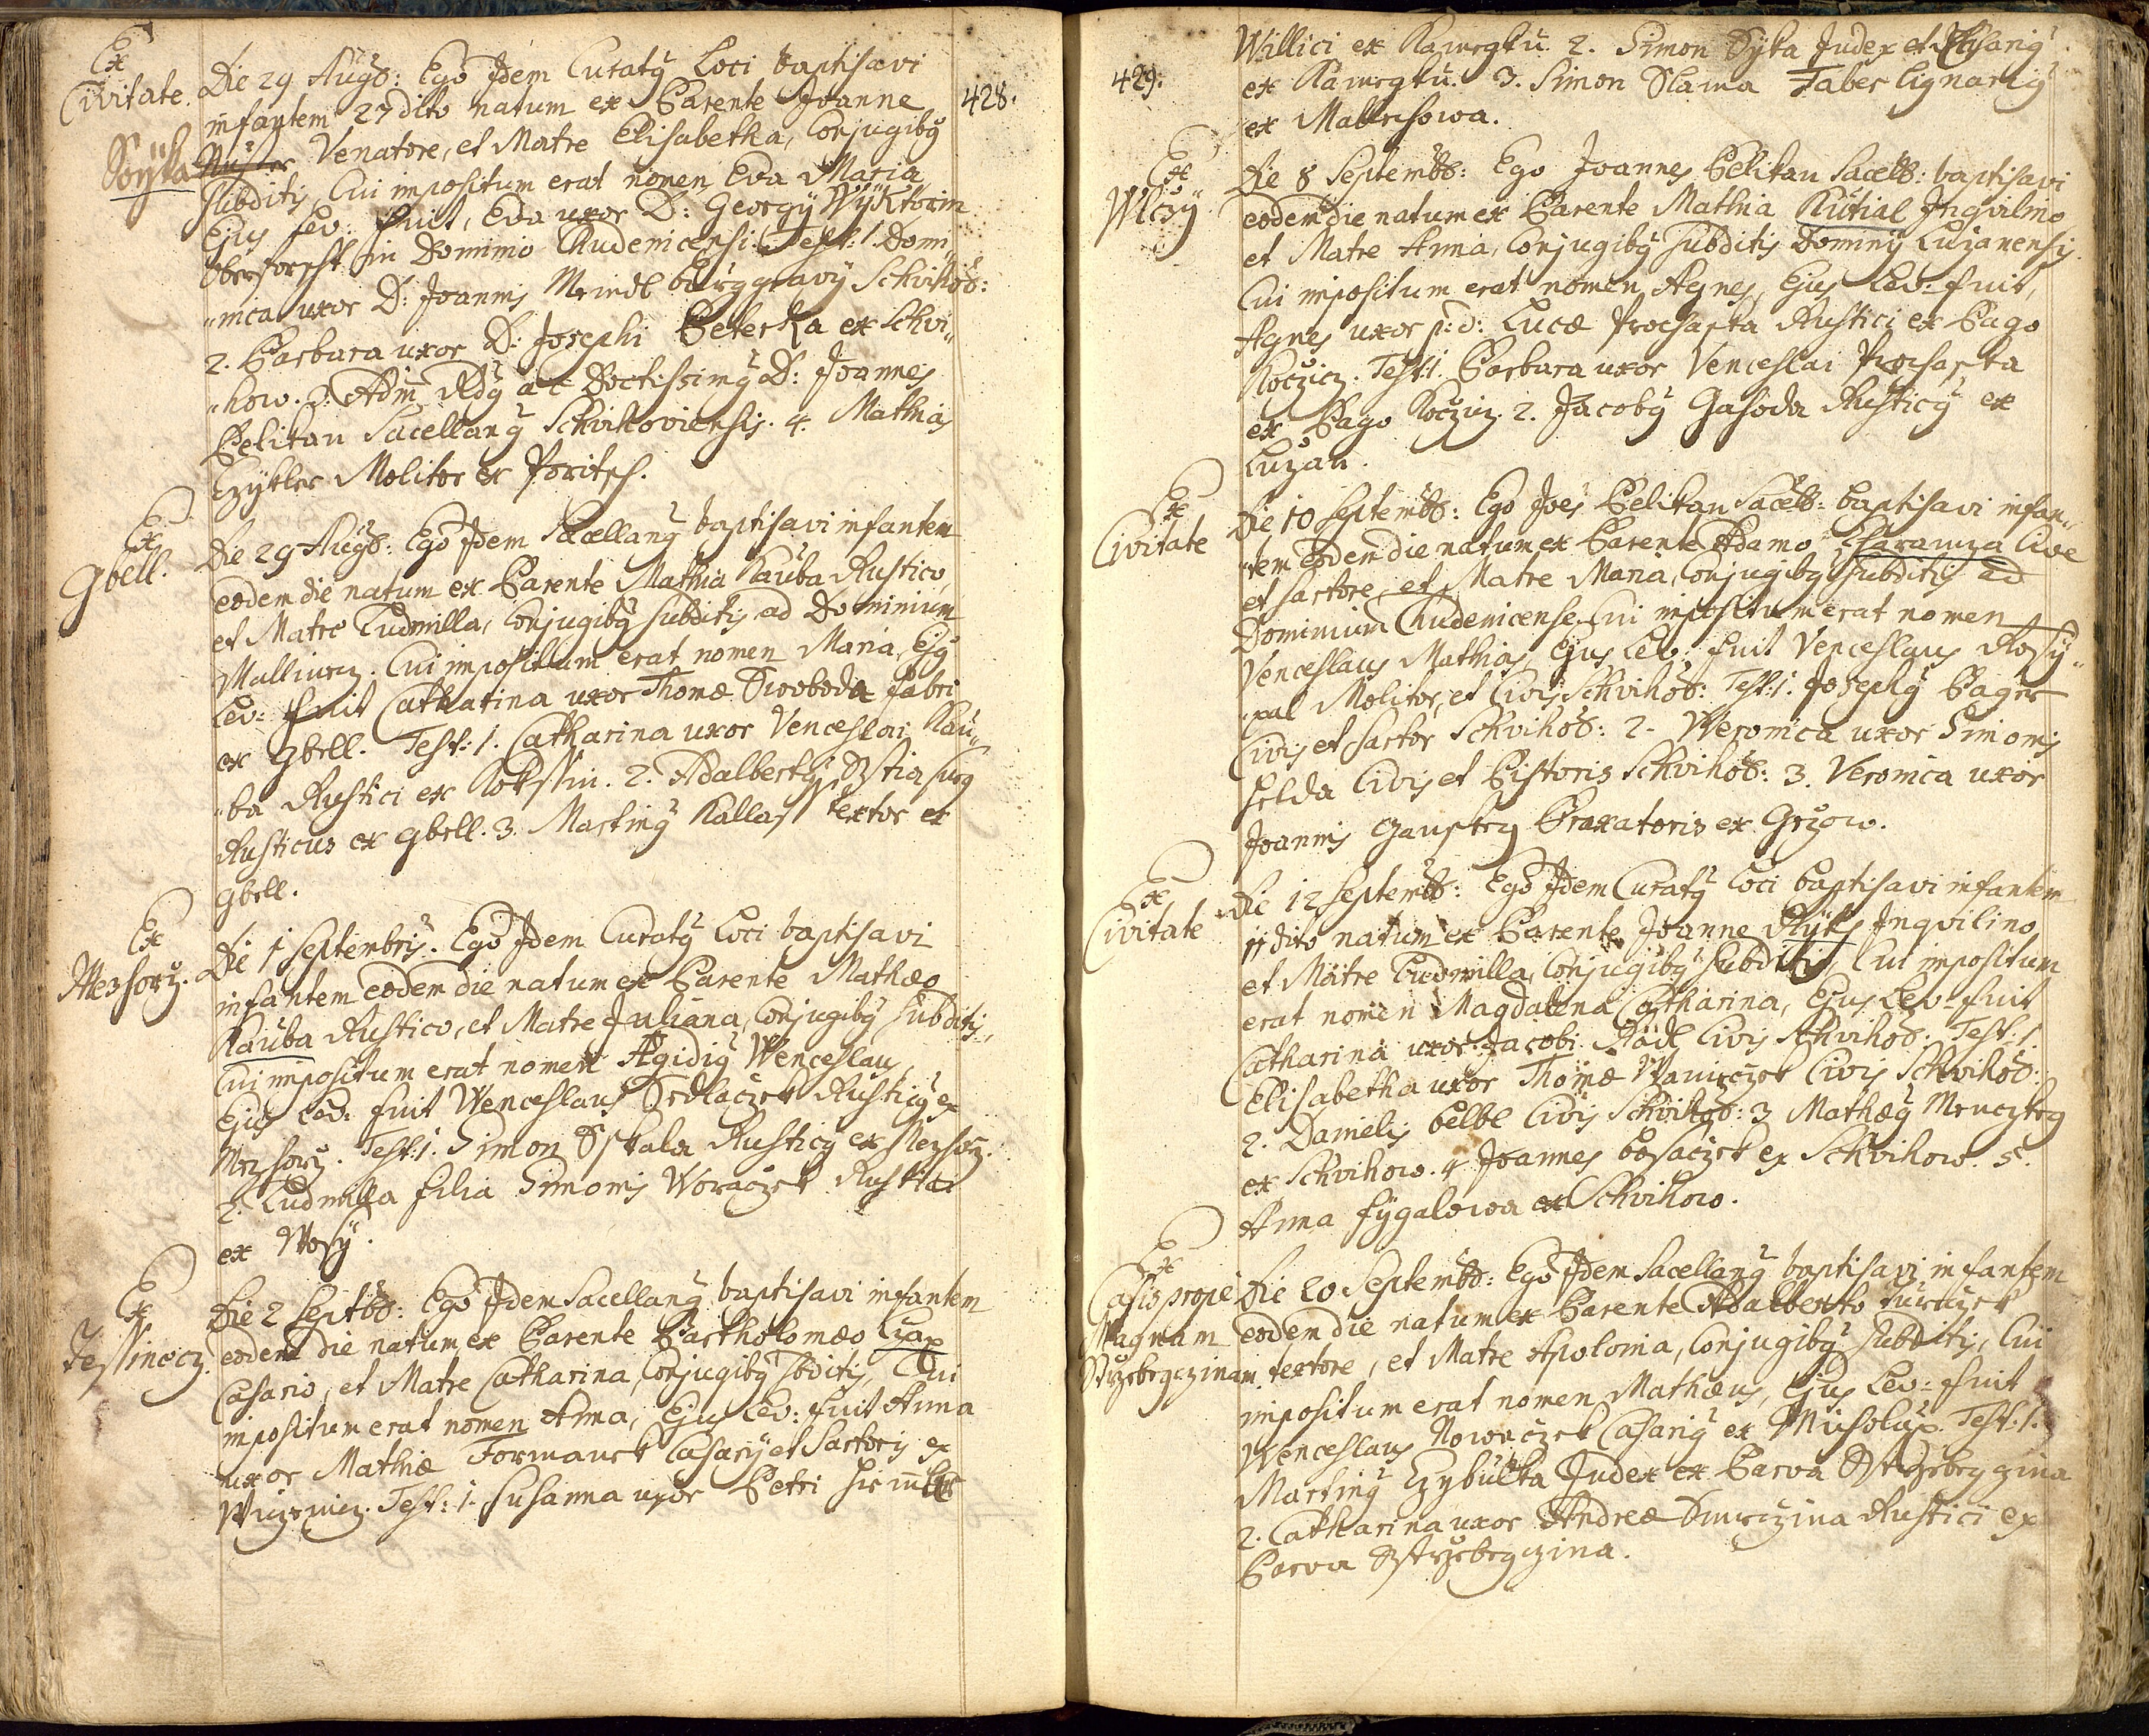 Ex
Civitate.
Soÿka
428.
Die 29 Augs: Ego Idem Curatq Loci baptisavi
infantem 27 dito natum ex Parente Joanne
Venatore, et Matre Elisabetha, Conjugibq
subditis, Cui impositum erat nomen Eva Maria
Ejus Lev: fuit, Eva uxor D: Georgÿ Wÿktorin
Oberforscht in Dominio Chudenicensi. Test: 1. Domi„
„nica uxor D: Joannis Meindl burggravÿ Schvihos:
2. Barbara uxor D: Josephi Peterka ex Schvi„
„how. 3. Adm Rdq ac Doctissimq D: Joannes
Pelikan Sacellanq Schvihoviensis. 4. Mathias
Czykler Molitor ex Poritsch.
Ex
Gbell.
Die 29 Augs: Ego Idem Sacellanq baptisavi infantem
eodem die natum ex Parente Mathia Kauba Rustico,
et Matre Ludmilla, Conjugibq subditis ad Dominium
Malliwecz. Cui impositum erat nomen Maria, Ejq
Lev: fuit Catharina uxor Thomæ Swoboda fabri
ex Gbell. Test: 1. Catharina uxor Venceslai Kau„
„ba Rustici ex Kokssin. 2. Adalbertq
Rusticus ex Gbell. 3. Martinq Kallass textor ex
Gbell.
Ex
Mezhorz.
Die 1 Septembris. Ego Idem Curatq Loci baptisavi
infantem eodem die natum ex Parente Mathæo
Kauba Rustico, et Matre Juliana, Conjugibq subditis,
Cui impositum erat nomen Ægidiq Wenceslaus,
Ejus Lev: fuit Wenceslaus Sedlaczek Rusticq ex
Mezhorz. Test: 1. Simon Skala Rusticq ex Mezhorz.
2. Ludmilla filia Simonis Woraczek Rustici
ex Wosÿ.
Ex
Tessinecz.
Die 2 Septbs: Ego Idem Sacellanq baptisavi infantem
eodem die natum ex Parente Bartholomæo Czap
Casario, et Matre Catharina, Conjugibq sbditis, Cui
impositum erat nomen Anna, Ejus Lev: fuit Anna
uxor Mathiæ Formanek Casarÿ et Sartoris ex
Test: 1. Susanna uxor Petri
429.
Willici ex Kamegku. 2. Simon Sÿka Judex et Casariq
ex Kamegku. 3. Simon Slama Faber lignariq
ex Mallechowa.
Ex
Wlczÿ
Die 8 Septembs: Ego Joannes Pelikan Sacels: baptisavi
eodem die natum ex Parente Mathia Kutial Inqvilino
et Matre Anna, Conjugibq subditis Dominÿ Luzanensis.
Cui impositum erat nomen Agnes, Ejus Lev: fuit,
Agnes uxor p: d: Lucæ Prochaska Rustici ex Pago
Koczicz. Test: 1. Barbara uxor Venceslai Prochaska
ex Pago Koczicz. 2. Jacobq Gahoda Rusticq ex
Luzan.
Ex
Civitate
Die 10 Septembs: Ego Joes Pelikan Sacels: baptisavi infan„
„tem eodem die natum ex Parente Adamo Charamza Cive
et sartore, et Matre Maria, Conjugibq subditis ad
Dominium Chudenicense, Cui impositum erat nomen
Venceslaus Mathias, Ejus Lev: fuit Venceslaus Rosÿ„
„pal Molitor, et Civis Schvihos: Test: 1. Josephq Pager
Civis et sartor Schvihos: 2. Weronica uxor Simonis
Selda Civis et Pistoris Schvihos: 3. Veronica uxor
Joannis Braxatoris ex Grzow.
Ex
Civitate
Die 12 Septembs: Ego Idem Curatq Loci baptisavi infantem
11 dito natum ex Parente Joanne Inqvilino
et Matre Ludmilla, Conjugibq subditis, Cui impositum
erat nomen Magdalena Catharina, Ejus Lev: fuit
Catharina uxor Jacobi Rädl Civis Schvihos: Test: 1.
Elisabetha uxor Thomæ Waniczek Civis Schvihos:
2. Danielis Civis Schvihos: 3 Mathæq
ex Schvihow. 4 Joannes Bosaczek ex Schvihow. 5.
Anna Fygalowa ex Schvihow.
Ex
Casis prope
Magnam
Strzebegczinam.
Die 20 Septembs: Ego Idem Sacellanq baptisavi infantem
eodem die natum ex Parente Adalberto Tureczek
textore, et Matre Apolonia, Conjugibq subditis, Cui
impositum erat nomen Mathæus, Ejus Lev: fuit
Wenceslaus Noweczek Casariq ex Micholup. Test: 1.
Martinq Czybulka Judex ex Parva Strzebegczina
2. Catharina uxor Andreæ Rustici ex
Parva Strzebegczina.